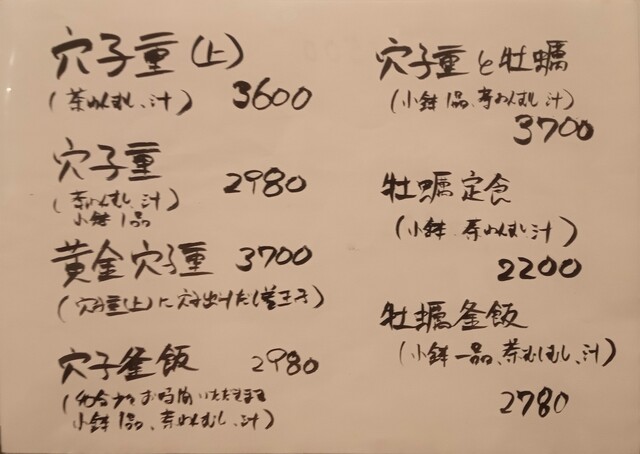 穴子重(上)
(茶わんむし、汁) 3600
穴子重 2980
(茶わんむし、汁)
小鉢1品
黄金穴子重 3700
(穴子重(上)に穴子出汁だし
穴子釜飯 2980
お時間いただきます
小鉢1品、茶わんむし、汁)
穴子重と牡蠣
(小鉢1品、茶わんむし汁)
3700
牡蠣定食
(小鉢、茶わんむし汁)
2200
牡蠣釜飯
(小鉢一品、茶むしむし、汁)
2780